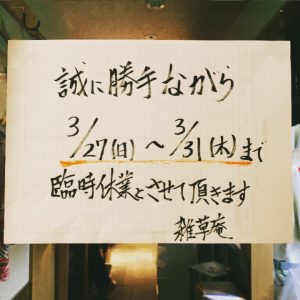 誠に勝手ながら
3/27(日)～3/31(木)まで
臨時休業とさせて頂きます
雑草庵